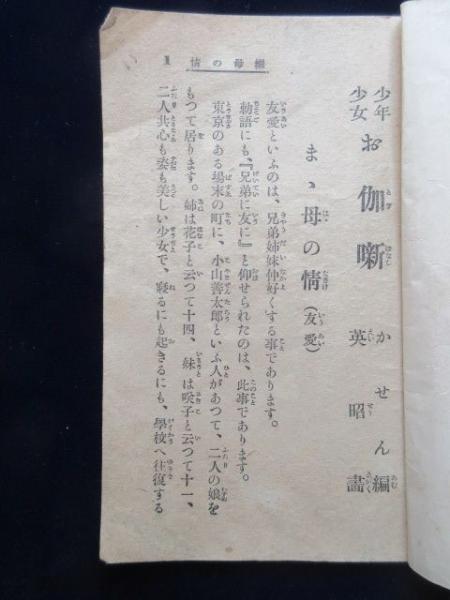 情の母繼 1
少年少女 お伽噺 かせん編
英昭畵
まゝ母の情(友愛)
友愛といふのは、兄弟姉妹仲好くする事であります。
勅語にも、『兄弟に友に』と仰せられたのは、此事であります。
東京のある場末の町に、小山善太郎といふ人があつて、二人の娘を
もつて居ります。姉は花子と云つて十四、妹は咲子と云つて十一、
二人共心も姿も美しい少女で、寢るにも起きるにも、學校へ往復する